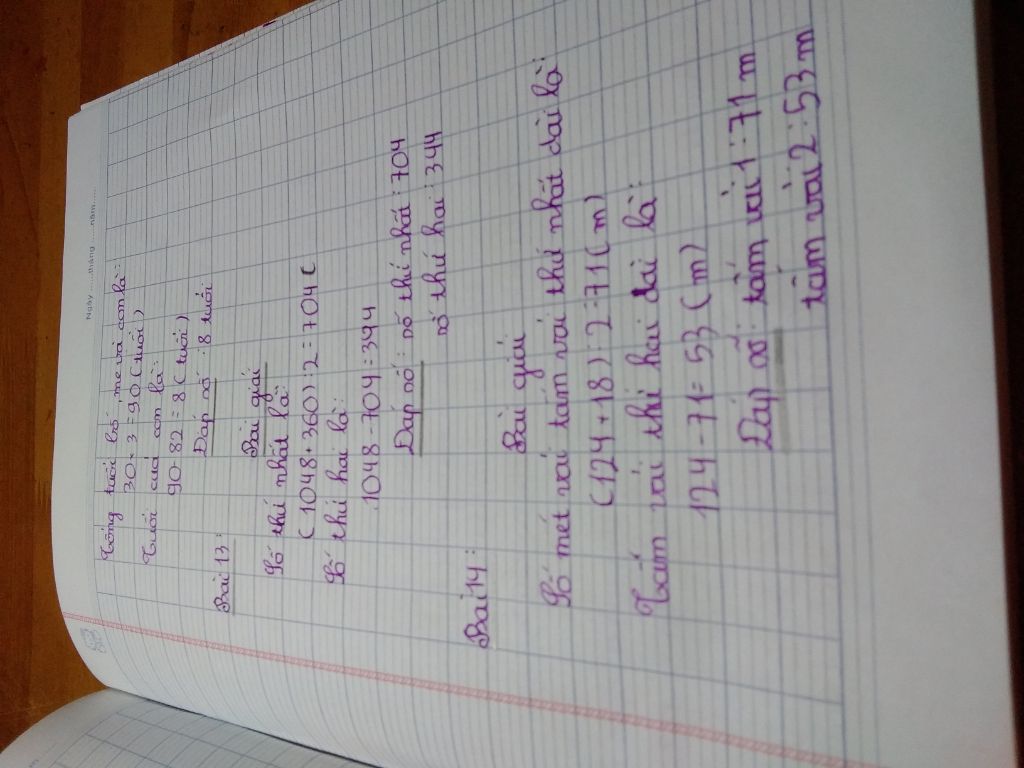 Ngày ......tháng ......năm......
Tổng tuổi bố, mẹ và con là:
30 x 3 = 90 (tuổi)
Tuổi của con là:
90 - 82 = 8 (tuổi)
Đáp số : 8 tuổi
Bài 13:
Bài giải
Số thứ nhất là:
(1048 + 360) 2 = 704 (
Số thứ hai là:
1048 - 704 = 344
Đáp số : số thứ nhất : 704
số thứ hai : 344
Bài 14:
Bài giải
Số mét vải tấm vải thứ nhất dài là:
(124 + 18) : 2 = 71 (m)
Tấm vải thứ hai dài là:
124 - 71 = 53 (m)
Đáp số: tấm vải 1 : 71 m
tấm vải 2 : 53 m